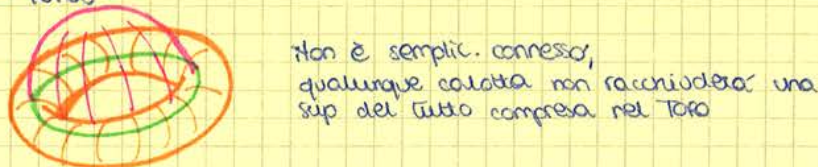 Non è semplic. connesso,
qualunque calotta non racchiuderà una
sup del tutto compresa nel TORO